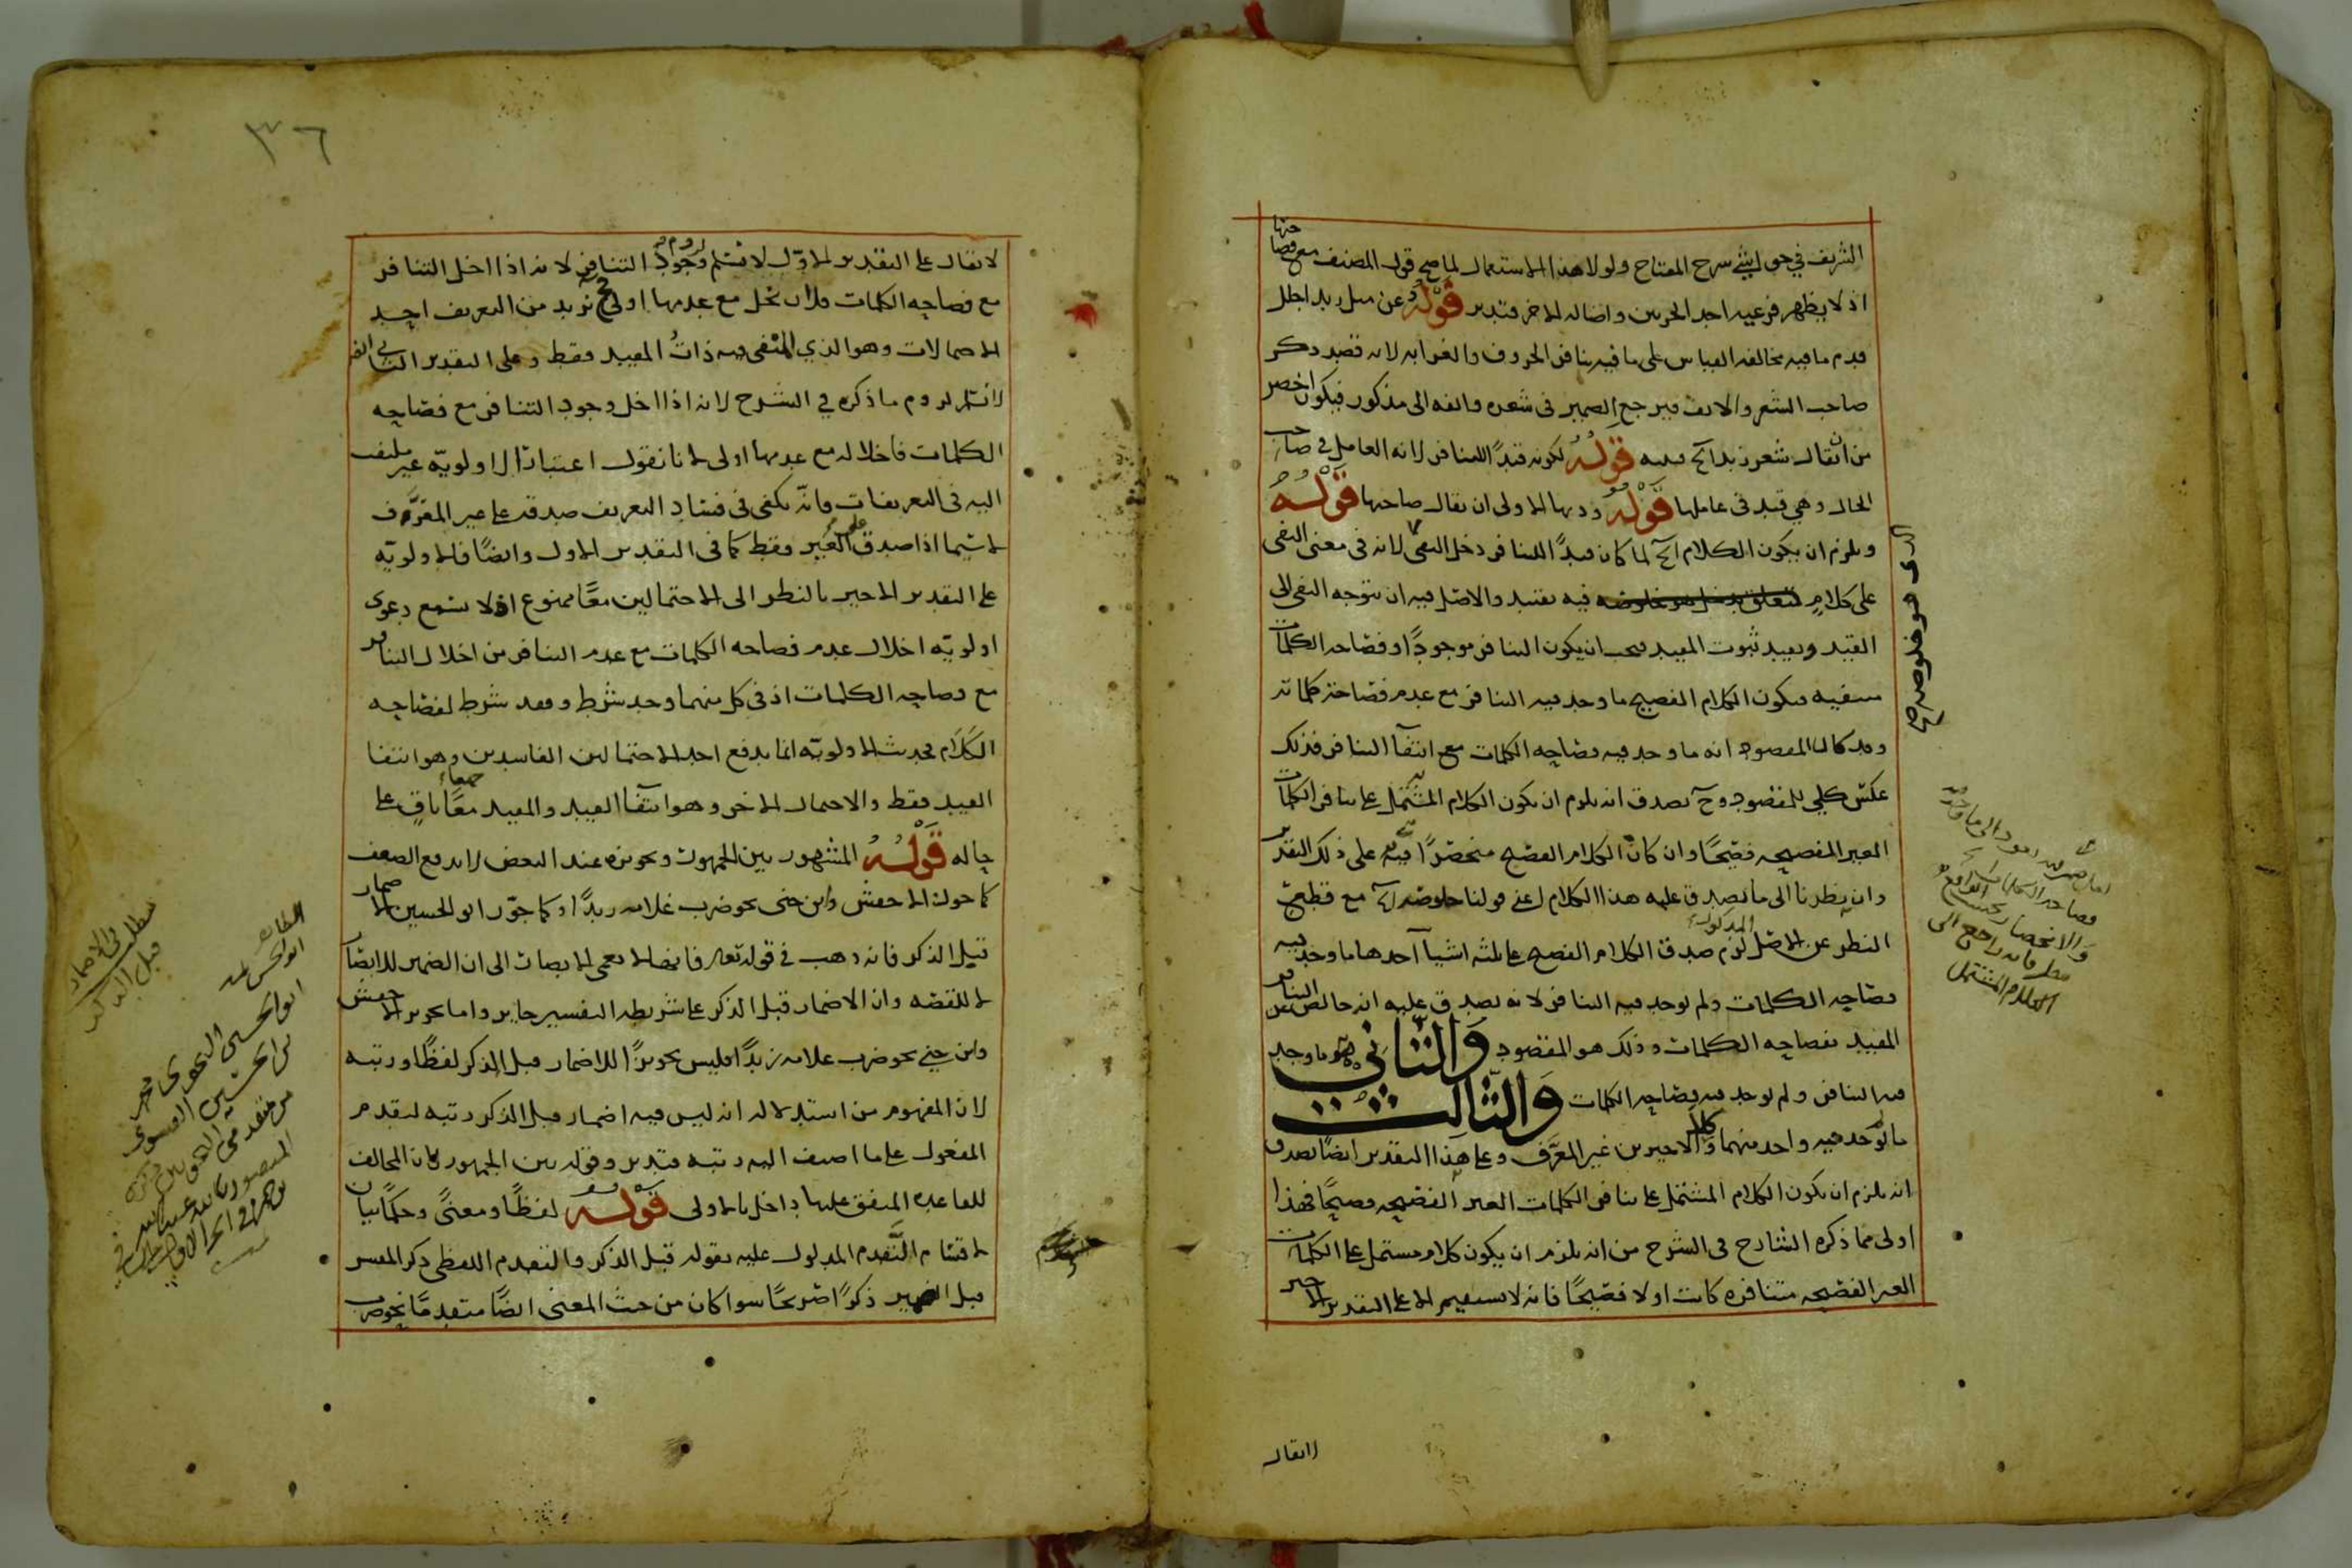 الشريف في حواشي شرح المفتاح ولولا هذا الاستعمال لما صح قول المصنف مع فصاحتها
اذ لا يظهر فرعيه احد الخرين واصاله الاخر فتدبر قوله وعن مثل زيد اجلل
قدم ما فيه مخالفه القياس على ما فيه تنافر الحروف والغرابه لانه قصد ذكر
صاحب الشعر والانف فيرجع الضمير في شعره وانفه الى مذكور فيكون اخصر
من ان يقال شعر زيد آلخ قوله لكونه قيدًا للتنافر لانه العامل في صاحب
الحال وهي قيد في عاملها قوله الاولى ان يقال صاحبها قوله
ويلزم ان يكون الكلام آلخ لما كان قيدًا للتنافر دخل النفي لانه في معنى النفي
على كلامٍ فيه تقييد والاصل فيه ان يتوجه النفي الى
القيد ويفيد ثبوت المقيد فيجب ان يكون التنافر موجودًا وفصاحه الكلمات
منتفيه فيكون الكلام الفصيح ما وجد فيه التنافر مع عدم فصاحة كلماته
وقد كان المقصود انه ما وجد فيه فصاحه الكلمات مع انتفآ التنافر فذلك
عكس كلي للمقصود وح يصدق انه يلزم ان يكون الكلام المشتمل على تنافر الكلمات
الغير الفصيحه فصيحًا وان كان الكلام الفصيح منحصرًا فيه على ذلك التقدير
وان نظرنا الى ما يصدق عليه هذا الكلام اعني قولنا خلوصه آلخ مع قطع
النظر عن الاصل المذكور لزم صدق الكلام الفصيح على ثلثه اشيآ آحدها ما وجد فيه
فصاحه الكلمات ولم يوجد فيه التنافر لانه يصدق عليه انه خالص من التنافر
المقيد بفصاحه الكلمات وذلك هو المقصود والثاني هو ما وجد
فيه التنافر ولم يوجد فيه فصاحه الكلمات والثالث
ما لم يوجد فيه واحد منهما وكلا الاخيرين غير المعرَّف وعلى هذا التقدير ايضًا يصدق
انه يلزم ان يكون الكلام المشتمل على تنافر الكلمات الغير الفصيحه فصيحًا فهذا
اولى مما ذكره الشارح في الشرح من انه يلزم ان يكون كلام مشتمل على الكلمات
الغير الفصيحه متنافره كانت اولا فصيحًا فانه لا يستقيم الا على التقدير الاخير
لايقال
الذي هو خلوصه صح
فصاحه الكلمات
والانحصار بحسب
راجع الى
الكلام المشتمل
٣٦
لا يقال على التقدير الاوّل لا نسلم لزوم وجود التنافر لانه اذا اخل التنافر
مع فصاحه الكلمات فلان يخل مع عدمها اولى نريد من التعريف احد
الاحتمالات وهو الذي المنتفى فيه ذاتُ المقيد فقط وعلى التقدير الثاني
لا نسلم لزوم ما ذكره في الشرح لانه اذا اخل وجود التنافر مع فصاحه
الكلمات فاخلاله مع عدمها اولى لانا نقول اعتبار الاولويّه غير ملتفت
اليه في التعريفات وانّه يكفي في فساد التعريف صدقه على غير المعرَّف
لاسيما اذا صدق على الغير فقط كما في التقدير الاول وايضًا فالاولويّه
على التقدير الاخير بالنظر الى الاحتمالين معًا ممنوع اذ لا تسمع دعوى
اولويّه اخلال عدم فصاحه الكلمات مع عدم التنافر من اخلال التنافر
مع فصاحه الكلمات اذ في كل منهما وجد شرط وفقد شرط لفصاحه
الكلام فحديث الاولويّه انما يدفع احد الاحتمالين الفاسدين وهو انتفا
القيد فقط والاحتمال الاخر وهو انتفآ القيد والمقيد معًا باقٍ على
حاله قوله المشهور بين الجمهور وتجويزه عند البعض لا يدفع الضعف
كما جوزه الاخفش وابن جني نحو ضرب غلامه زيدًا وكما جوّز ابو الحسين الاضمار
قبل الذكر فانه ذهب في قوله تعالى فانها لا تعمى الابصار الى ان الضمير للابصار
لا للقصه وان الاضمار قبل الذكر على شريطه التفسير جايز واما تجويز الاخفش
وابن جني نحو ضرب غلامه زيدًا فليس تجويزًا للاضمار قبل الذكر لفظًا ورتبه
لان المفهوم من استدلاله انه ليس فيه اضمار قبل الذكر رتبه لتقدم
المفعول على ما اضيف اليه رتبه فتدبر وقوله بين الجمهور لان المخالف
للقاعده المتفق عليها داخل بالاولى قوله لفظًا ومعنىً وحكمًا بيان
لاقسام التَّقدم المدلول عليه بقوله قبل الذكر والتقدم اللفظي ذكر المفسر
قبل الضمير ذكرًا صريحًا سوا كان من حيث المعنى ايضًا متقدمًا نحو ضرب
مطلب في الاضمار
قبل الذكر